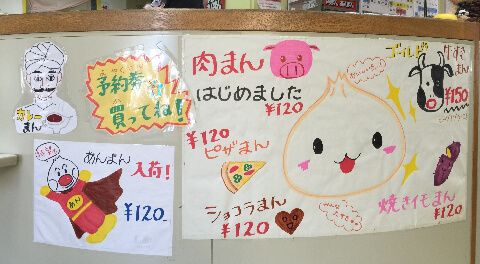 カレー
まん
予約券
買ってね!
めんまん
入荷!
めん
¥120
肉まん
はじめました
¥120
¥120
ピザまん
ショコラまん
¥120
ゴールド
牛すき
まん
¥150
焼きイモまん
¥120